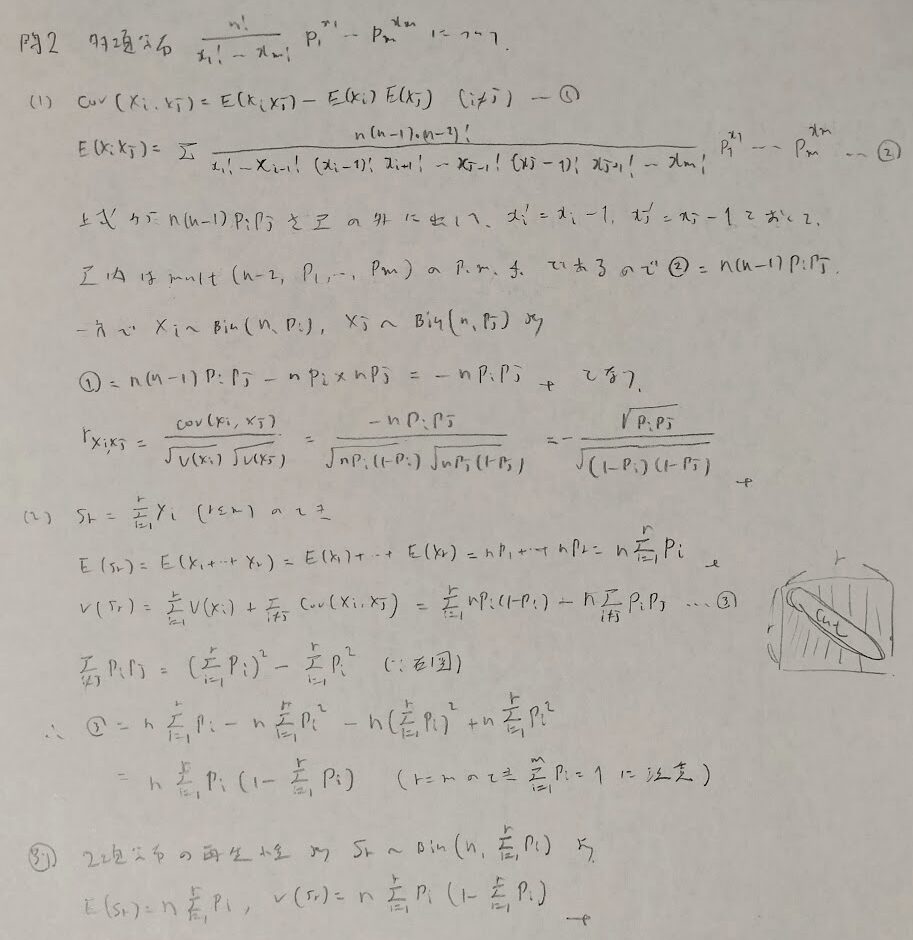 問2 多項分布 n!/(x₁!…x_m!) p₁^{x₁} … p_m^{x_m} について.
(1) cov(Xi, Xj) = E(XiXj) − E(Xi) E(Xj) (i≠j) … ①
E(XiXj) = Σ n(n-1)・(n-2)! / (x₁!…x_{i-1}! (xi-1)! x_{i+1}! … x_{j-1}! (xj-1)! x_{j+1}! … x_m!) p₁^{x₁} … p_m^{x_m} … ②
上式から n(n-1)PiPj をΣの外に出して、xi' = xi-1, xj' = xj-1 とおくと、
Σ内は mult(n-2, P₁, …, Pm) の p.m.f. であるので ② = n(n-1)PiPj.
一方で Xi ~ Bin(n, Pi), Xj ~ Bin(n, Pj) より
① = n(n-1)PiPj − nPi × nPj = −nPiPj となる.
r_{XiXj} = cov(Xi, Xj) / (√V(Xi) √V(Xj)) = −nPiPj / (√nPi(1-Pi) √nPj(1-Pj)) = − √PiPj / √(1-Pi)(1-Pj)
(2) Sr = Σ_{i=1}^{r} Xi (r≤m) のとき
E(Sr) = E(X₁+…+Xr) = E(X₁)+…+E(Xr) = nP₁+…+nPr = n Σ_{i=1}^{r} Pi
V(Sr) = Σ_{i=1}^{r} V(Xi) + Σ_{i≠j} Cov(Xi, Xj) = Σ_{i=1}^{r} nPi(1-Pi) − n Σ_{i≠j} PiPj … ③
Σ_{i≠j} PiPj = (Σ_{i=1}^{r} Pi)² − Σ_{i=1}^{r} Pi² (∵右図)
r
r
cut
∴ ③ = n Σ_{i=1}^{r} Pi − n Σ_{i=1}^{r} Pi² − n(Σ_{i=1}^{r} Pi)² + n Σ_{i=1}^{r} Pi²
= n Σ_{i=1}^{r} Pi (1 − Σ_{i=1}^{r} Pi) (r=mのとき Σ_{i=1}^{m} Pi = 1 に注意)
別) 2項分布の再生性より Sr ~ Bin(n, Σ_{i=1}^{r} Pi) より
E(Sr) = n Σ_{i=1}^{r} Pi, V(Sr) = n Σ_{i=1}^{r} Pi (1 − Σ_{i=1}^{r} Pi)